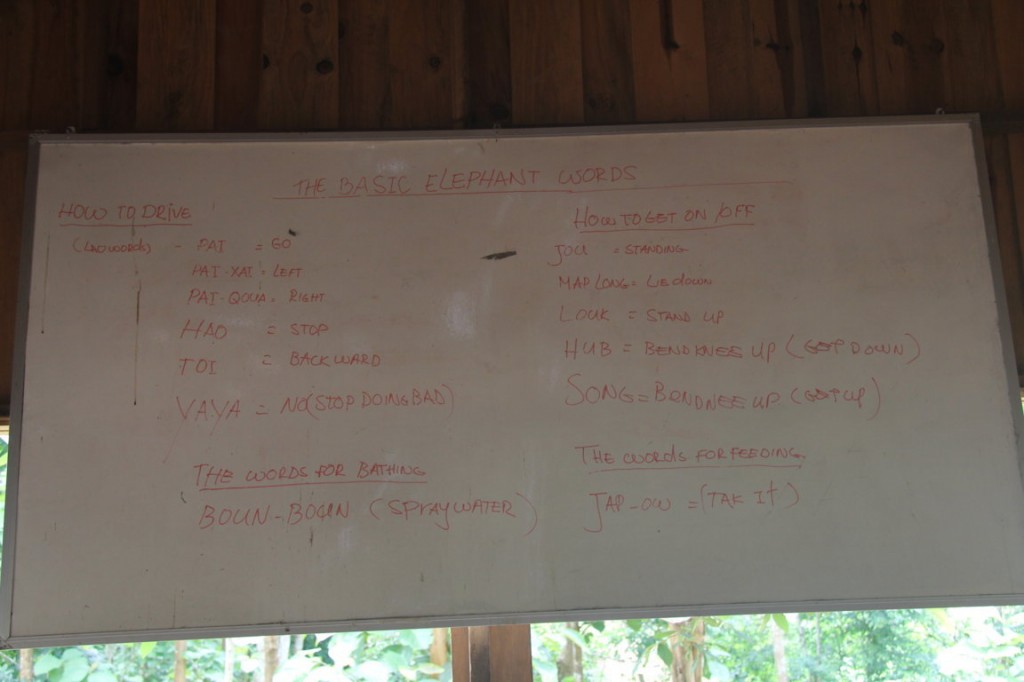 THE BASIC ELEPHANT WORDS
HOW TO DRIVE
(LAO WORDS) - PAI = GO
PAI-XAI = LEFT
PAI-QOUA = RIGHT
HAO = STOP
TOI = BACKWARD
VAYA = NO(STOP DOING BAD)
THE WORDS FOR BATHING
BOUN-BOUN (SPRAY WATER)
HOW TO GET ON /OFF
= STANDING
MAP LONG = LIE down
LOUK = STAND UP
HUB = BEND KNEES UP (GET DOWN)
SONG = BENDNEE UP (GET UP)
THE WORDS FOR FEEDING
JAP-OW = (TAK It)